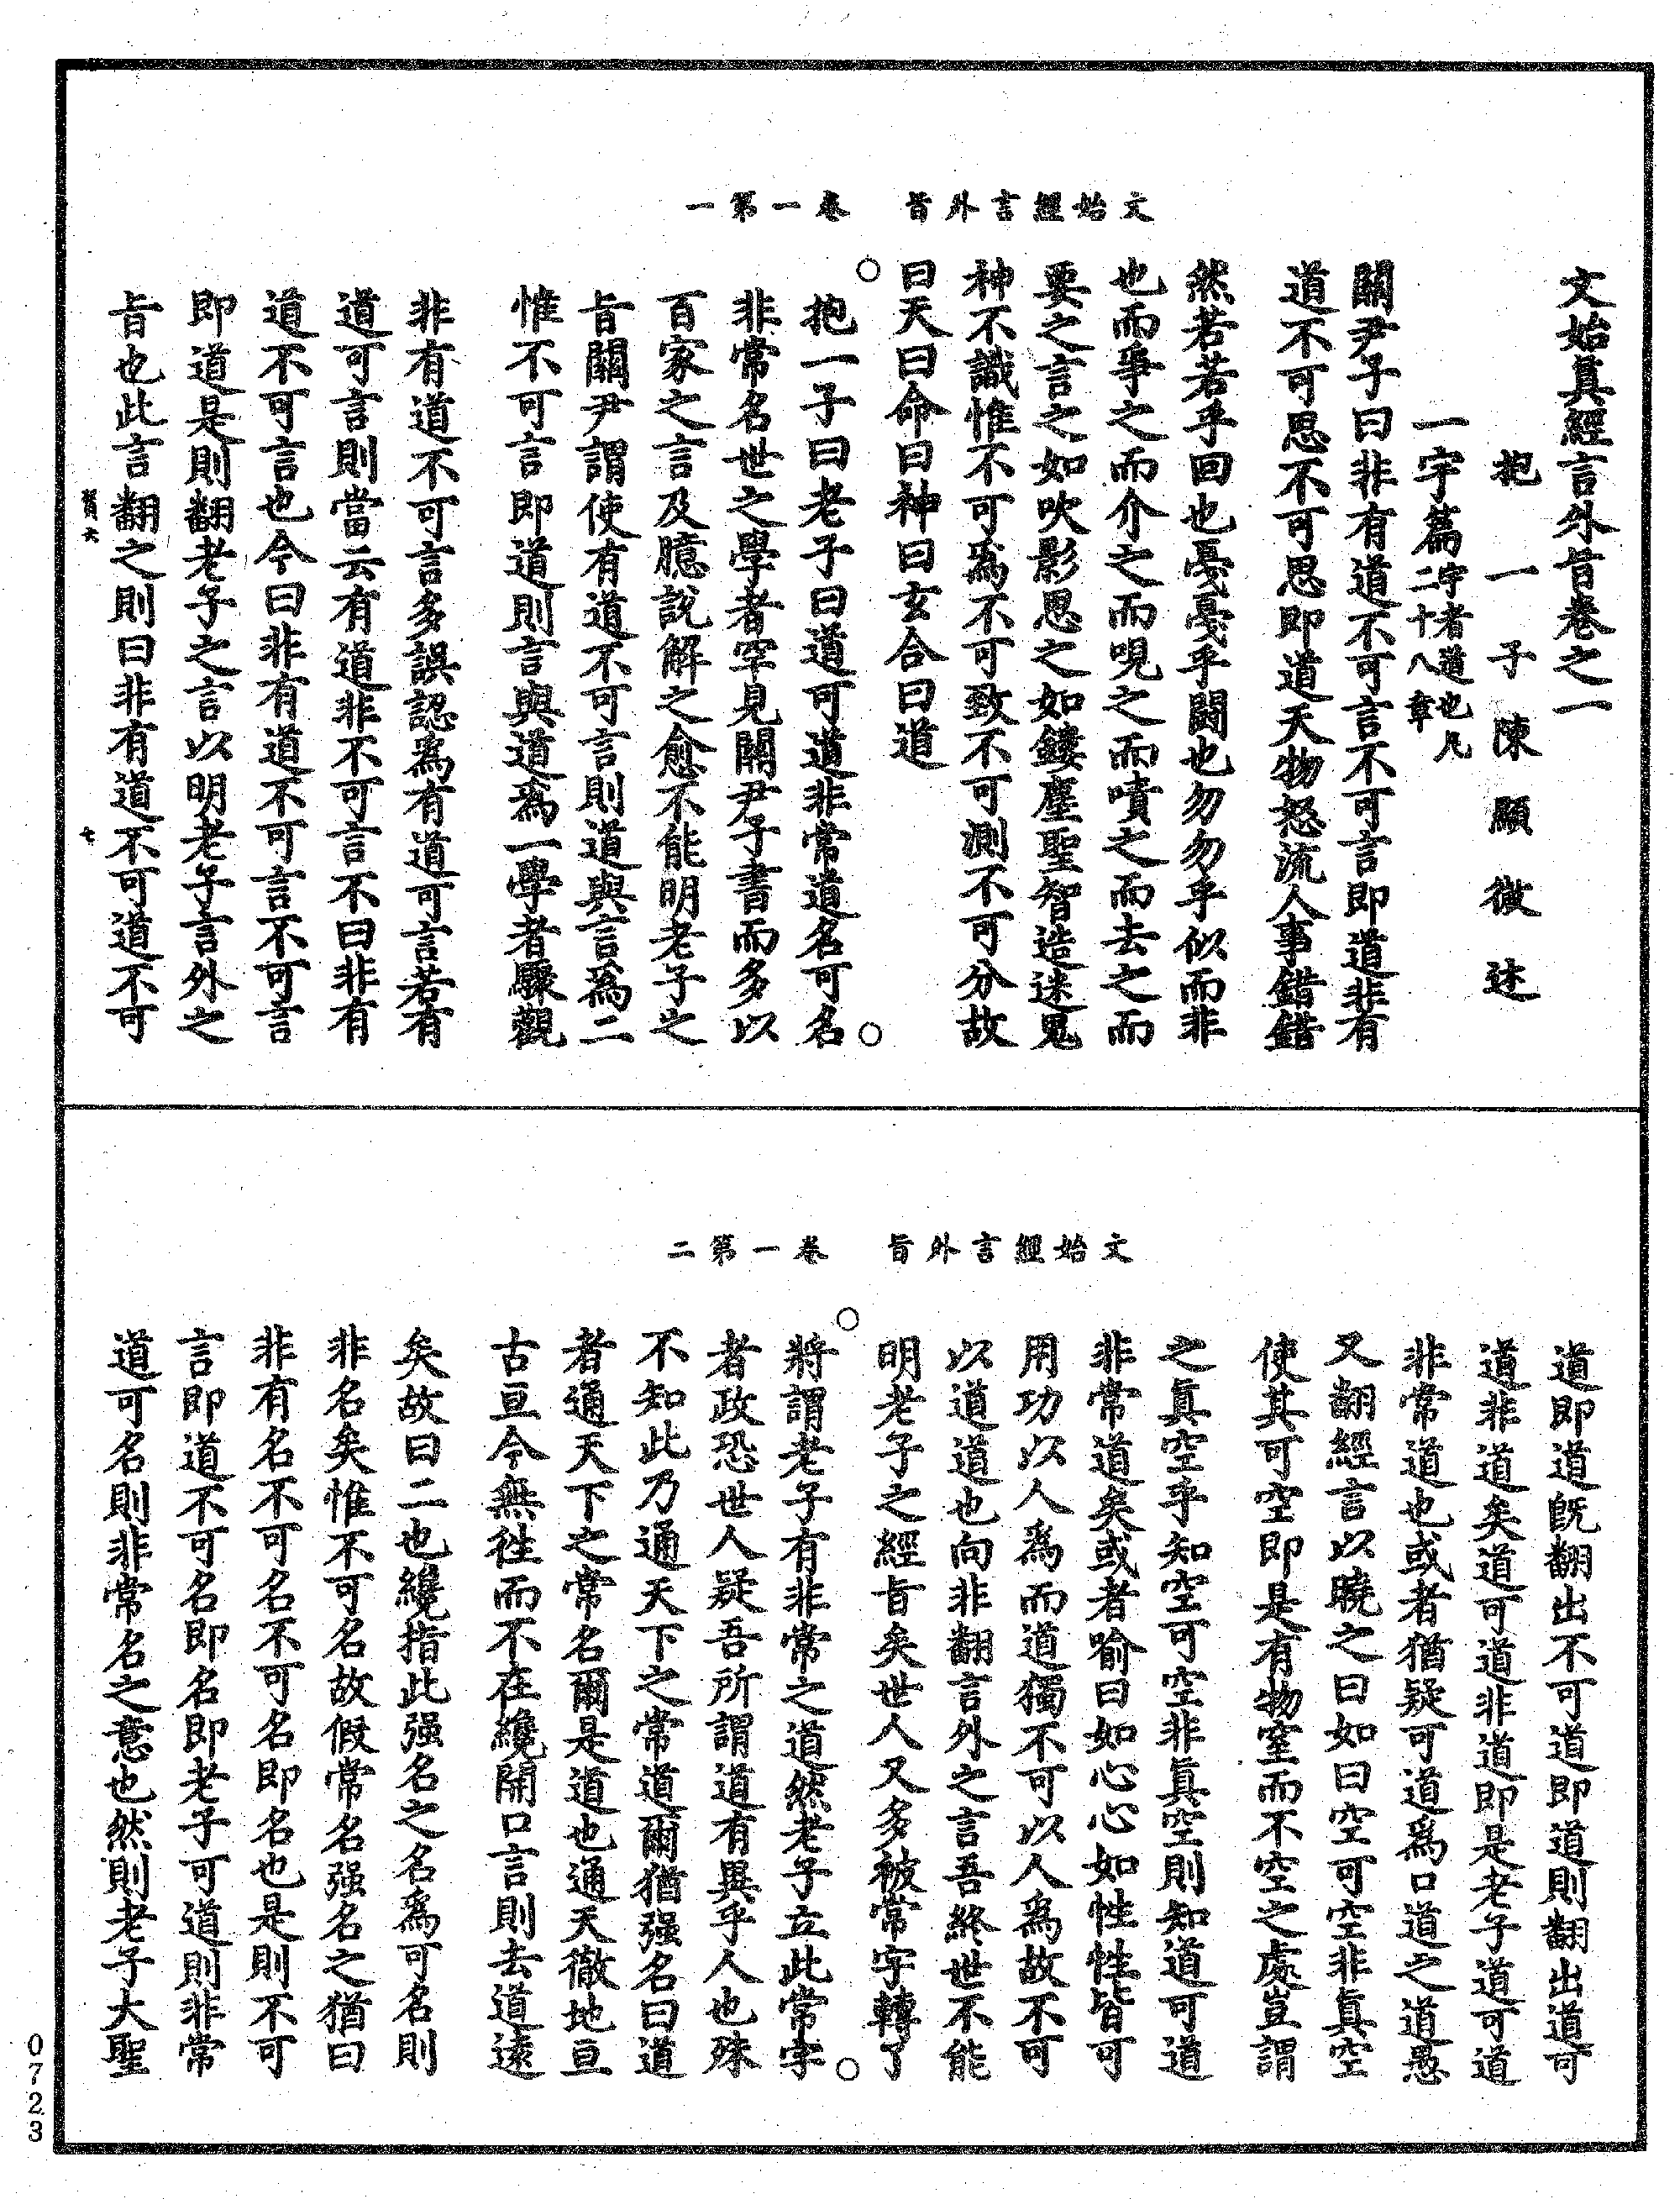 文始經言外旨　卷一第一
文始真經言外旨卷之一
抱一子陳顯微述
一宇篇宇者道也凡二十八章
關尹子曰非有道不可言不可言即道非有
道不可思不可思即道天物怒流人事錯錯
然若若乎回也戞戞乎鬪也勿勿乎似而非
也而爭之而介之而哯之而嘖之而去之而
要之言之如吹影思之如鏤塵聖智造迷鬼
神不識惟不可為不可致不可測不可分故
曰天曰命曰神曰玄合曰道
抱一子曰老子曰道可道非常道名可名
非常名世之學者罕見關尹子書而多以
百家之言及臆說解之愈不能明老子之
旨關尹謂使有道不可言則道與言為二
惟不可言即道則言與道為一學者驟觀
非有道不可言多誤認為有道可言若有
道可言則當云有道非不可言不曰非有
道不可言也今曰非有道不可言不可言
即道是則翻老子之言以明老子言外之
旨也此言翻之則曰非有道不可道不可
賢六
七
文始經言外旨　卷一第二
道即道既翻出不可道即道則翻出道可
道非道矣道可道非道即是老子道可道
非常道也或者猶疑可道為口道之道愚
又翻經言以曉之曰如曰空可空非真空
使其可空即是有物窒而不空之處豈謂
之真空乎知空可空非真空則知道可道
非常道矣或者喻曰如心心如性性皆可
用功以人為而道獨不可以人為故不可
以道道也向非翻言外之言吾終世不能
明老子之經旨矣世人又多被常字轉了
將謂老子有非常之道然老子立此常字
者政恐世人疑吾所謂道有異乎人也殊
不知此乃通天下之常道爾猶强名曰道
者通天下之常名爾是道也通天徹地亘
古亘今無往而不在纔開口言則去道遠
矣故曰二也纔指此强名之名為可名則
非名矣惟不可名故假常名强名之猶曰
非有名不可名不可名即名也是則不可
言即道不可名即名即老子可道則非常
道可名則非常名之意也然則老子大聖
0723